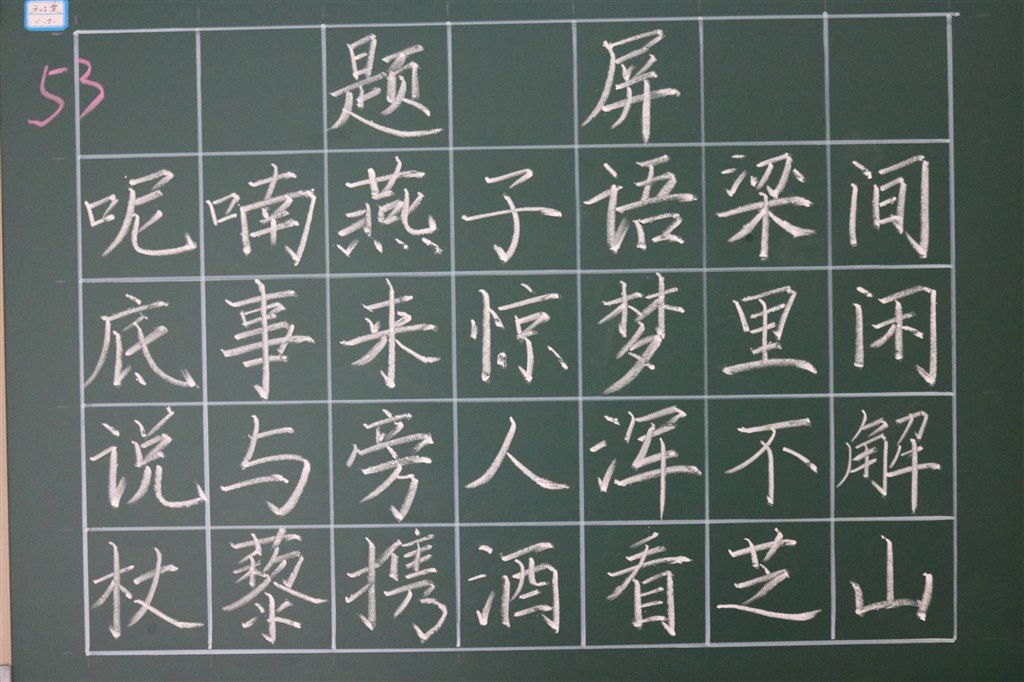 53
题屏
呢喃燕子语梁间
底事来惊梦里闲
说与旁人浑不解
杖藜携酒看芝山